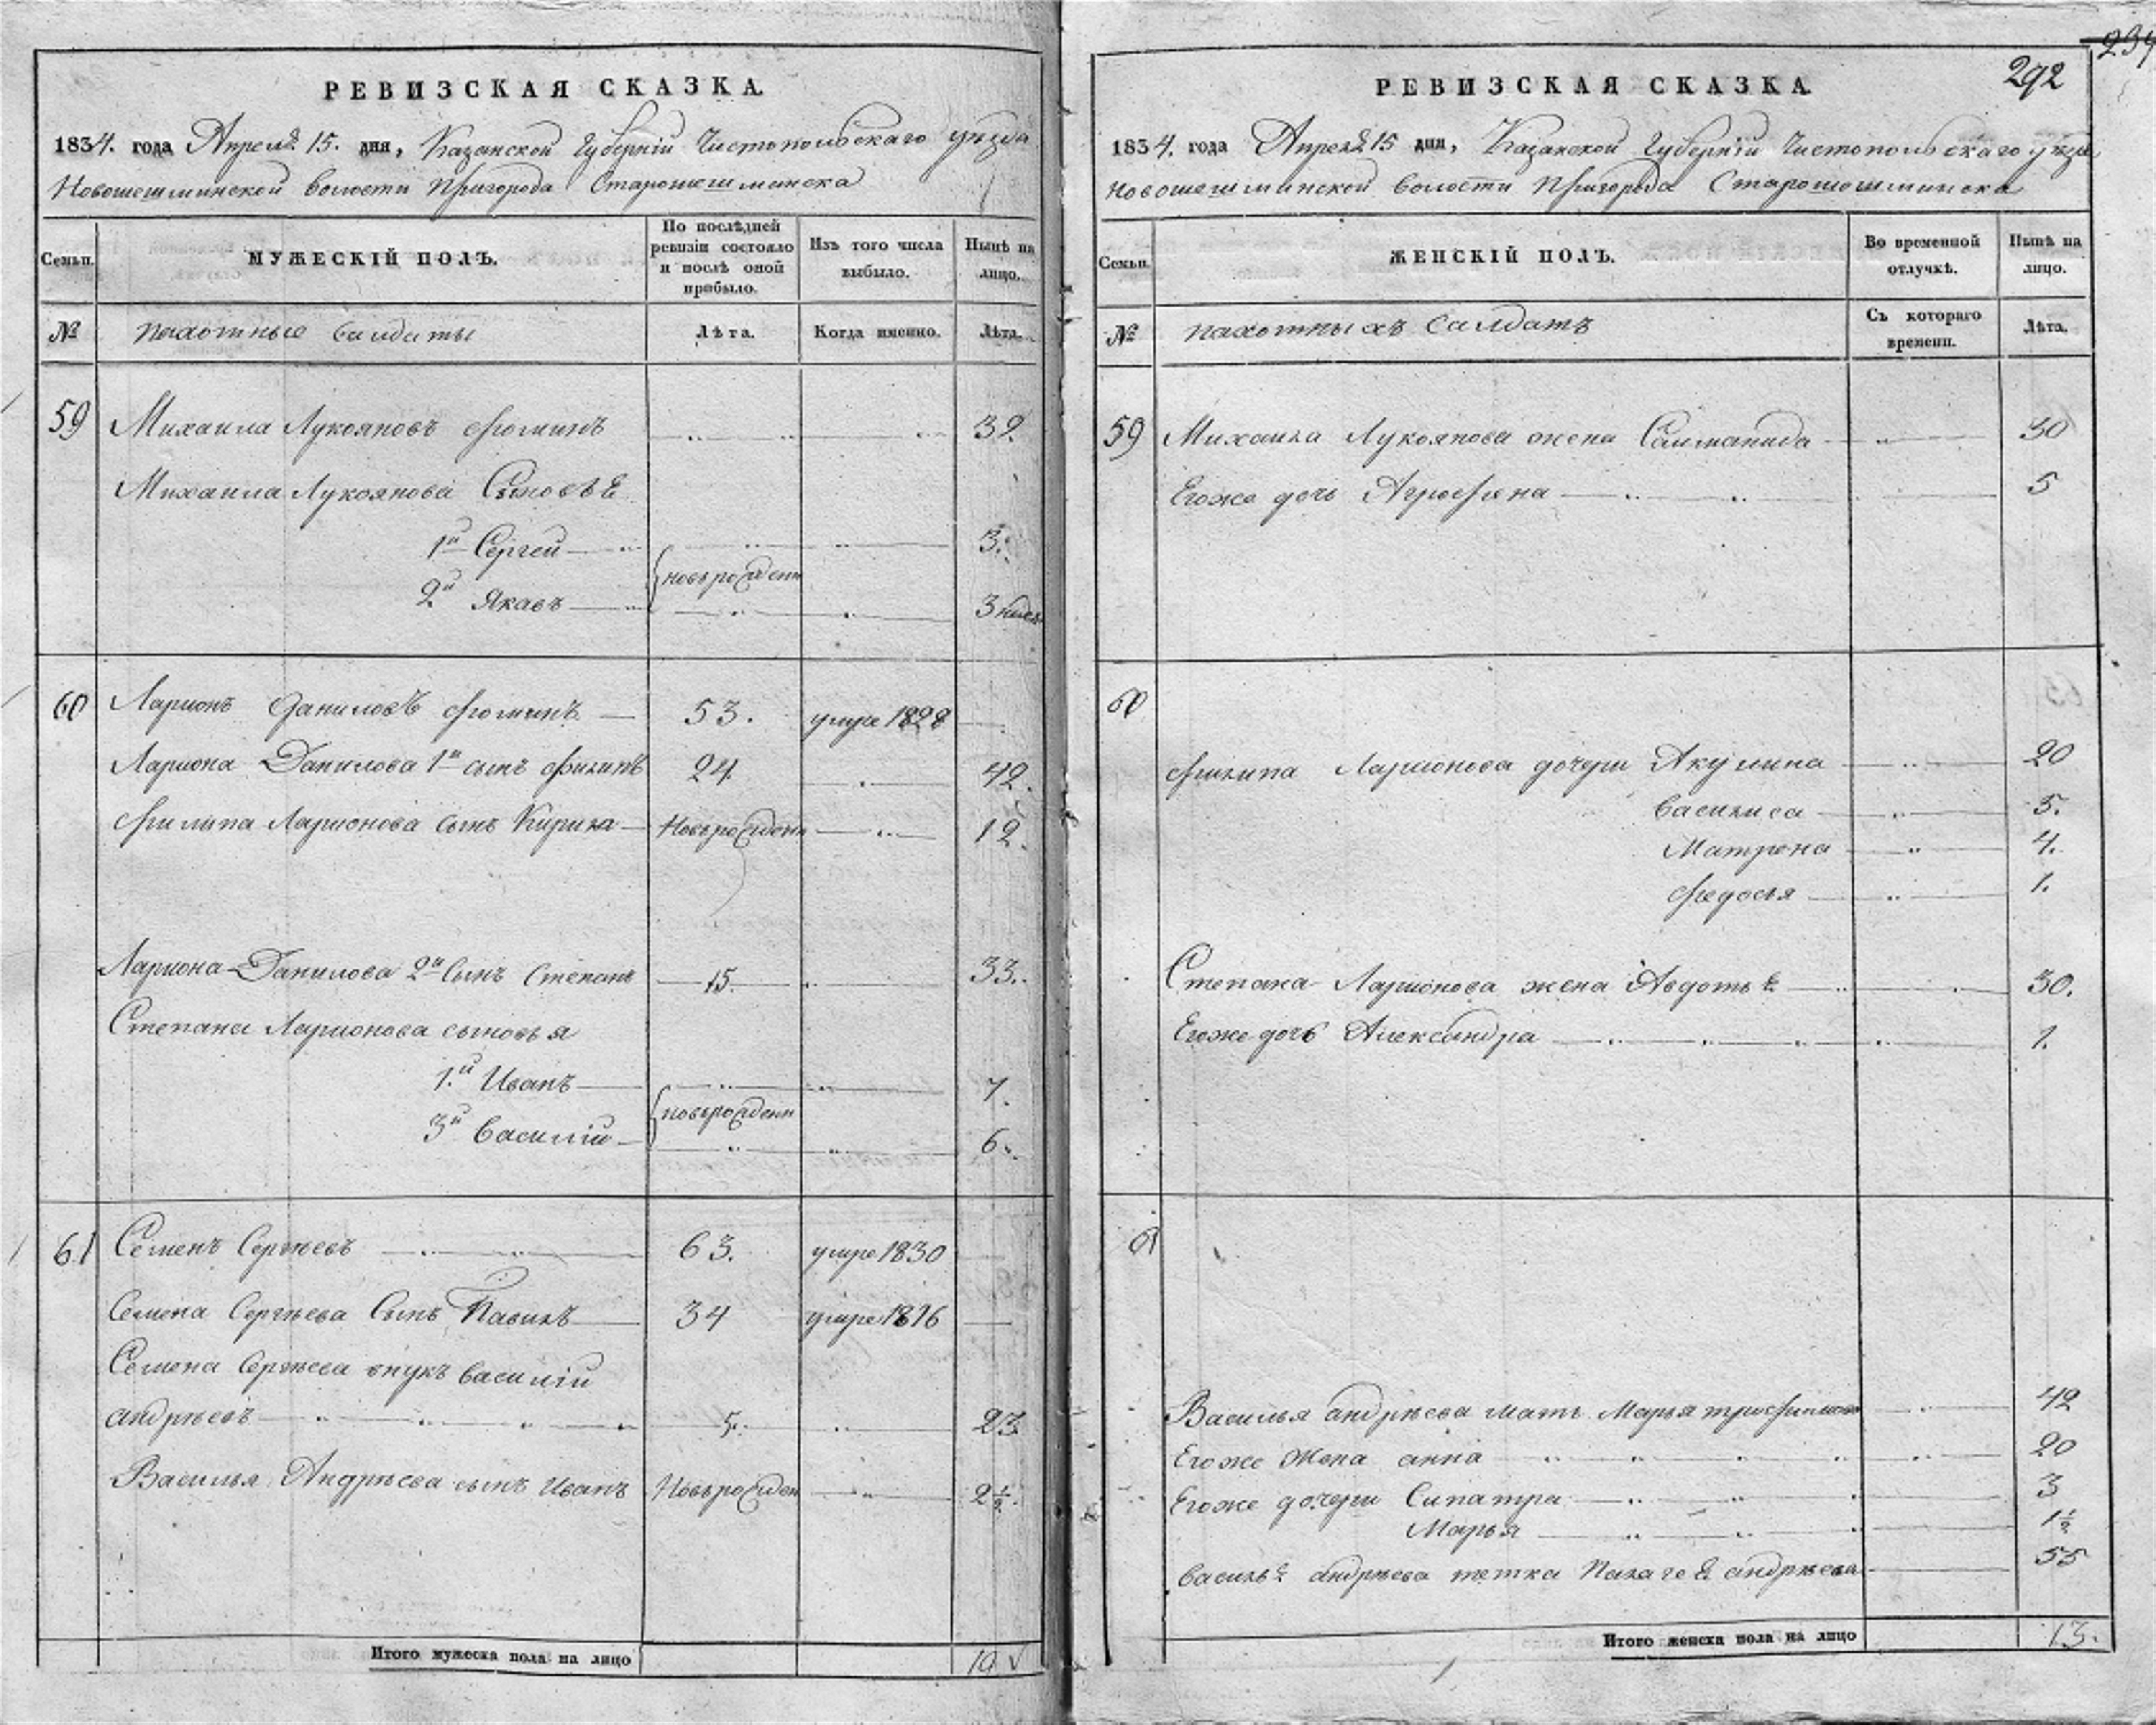 РЕВИЗСКАЯ СКАЗКА.
1834. года Апреля 15. дня, Казанской Губерніи Чистопольскаго уѣзда
Новошешминской волости Пригорода Старошешминска
Семьи.
МУЖЕСКІЙ ПОЛЪ.
По послѣдней ревизіи состояло и послѣ оной прибыло.
Изъ того числа выбыло.
Нынѣ на лицо.
№
пахотные Салдаты
Лѣта.
Когда именно.
Лѣта.
59 Михаила Лукояновъ Фоминъ 32.
Михаила Лукоянова Сыновья
1й Сергей 3.
новърожденн
2й Якавъ 3 недел
60 Ларионъ Даниловъ Фоминъ 53. умре 1828
Лариона Данилова 1й сынъ Филипъ 24 42.
Филипа Ларионова Сынъ Кирила Новърожденн 12.
Лариона Данилова 2й Сынъ Степанъ 15. 33.
Степана Ларионова сыновья
1.й Иванъ 7.
новърожденн
3й Василій 6.
61 Семенъ Сергѣевъ 63. умре 1830
Семена Сергѣева Сынъ Павилъ 34 умре 1816
Семена Сергѣева внукъ Василій
андрѣевъ 5. 23
Василья Андрѣева сынъ Иванъ Новърожден 2½.
Итого мужеска пола на лицо 10
239
292
РЕВИЗСКАЯ СКАЗКА
1834. года Апреля 15 дня, Казанской Губерніи Чистопольскаго уѣзда
Новошешминской волости Пригорода Старошешминска
Семьи.
ЖЕНСКІЙ ПОЛЪ.
Во временной отлучкѣ.
Нынѣ на лицо.
№
пахотныхъ Салдатъ
Съ котораго времени.
Лѣта.
59 Михаила Лукоянова жена Салманида 30
Егоже дочь Агрофена 5
60
Филипа Ларионова дочери Акулина 20
Василиса 5.
Матрена 4.
Федосья 1.
Степана Ларионова жена Авдотья 30.
Егоже дочь Александра 1.
61
Василья андрѣева мать Марья 42
Егоже Жена анна 20
Егоже дочери Сипатра 3
Марья 1½
Василья андрѣева тетка Палагея андрѣева 55
Итого женска пола на лицо 13.